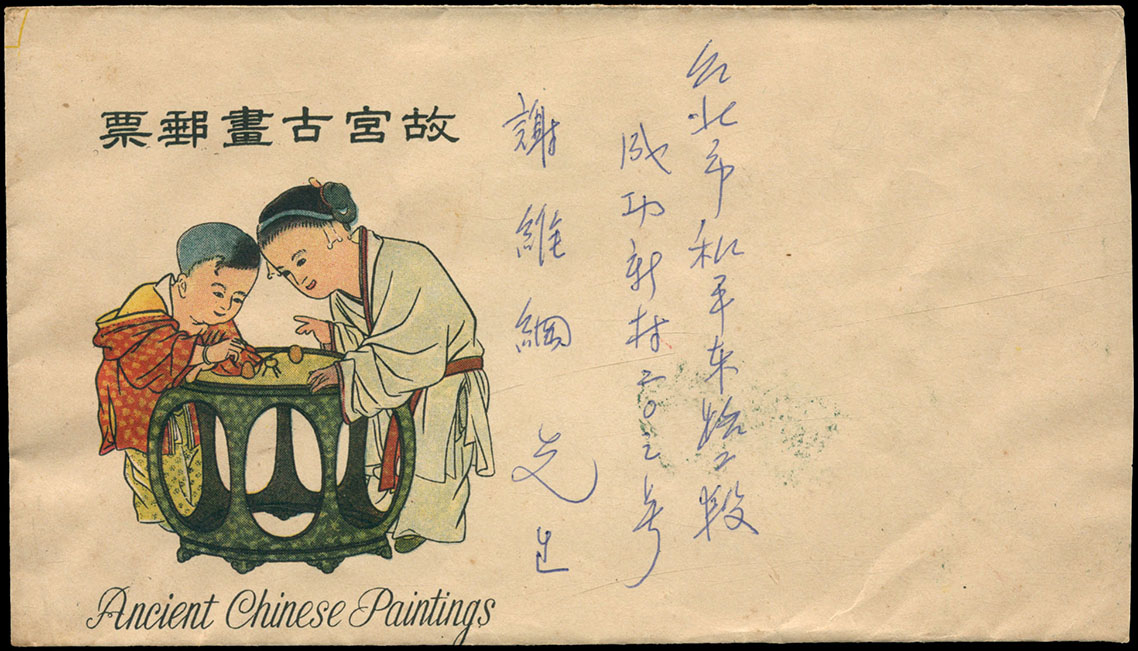 故宮古畫郵票
台北市和平东路二段
成功新村二〇二号
謝維綱先生
Ancient Chinese Paintings